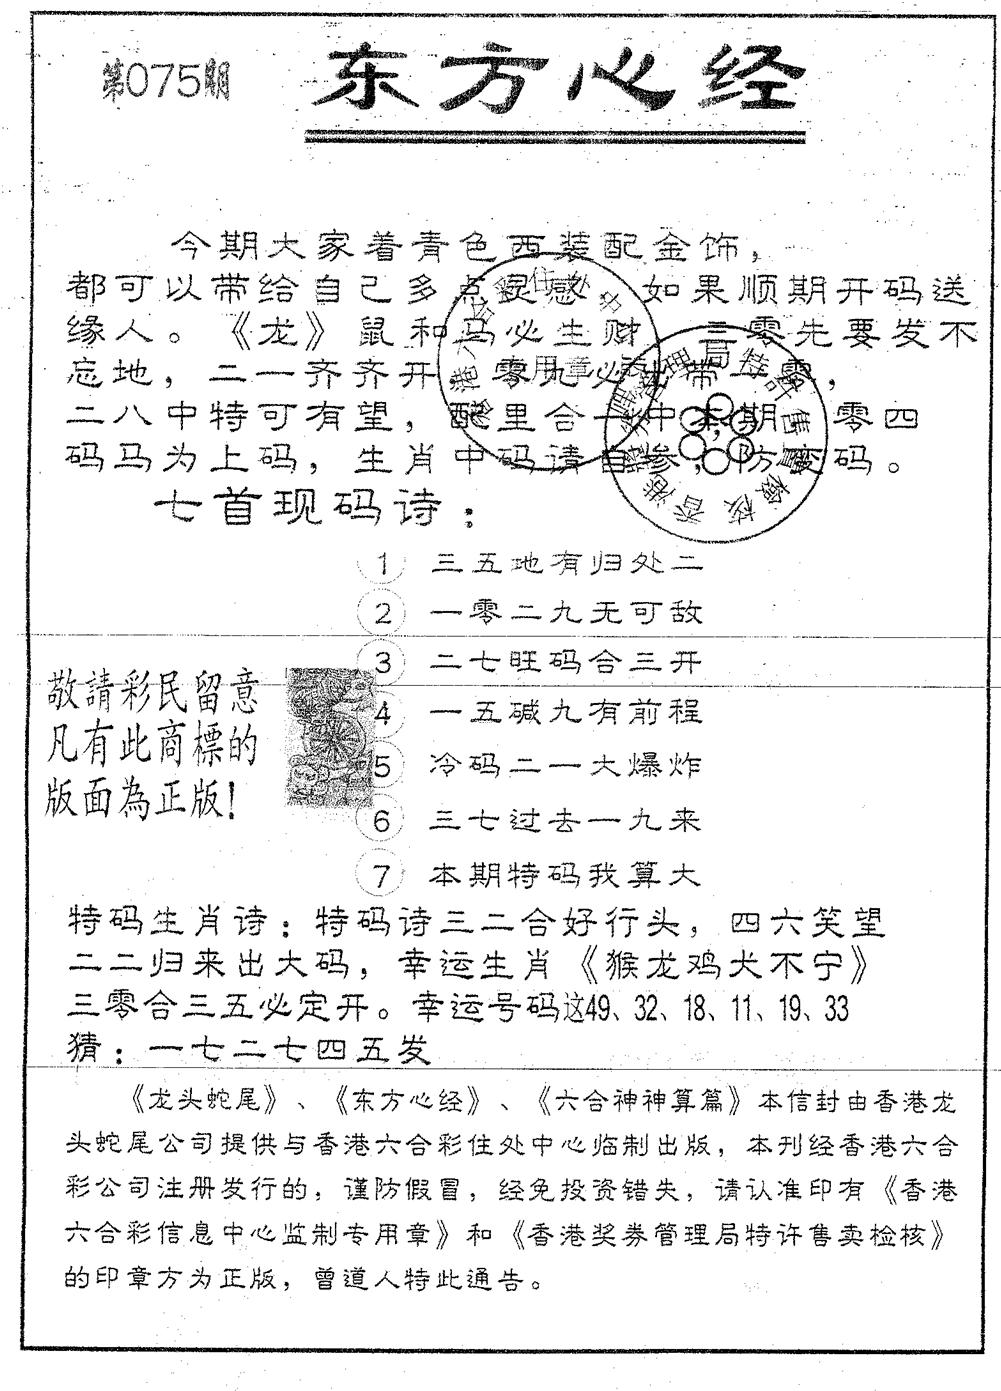 第075期
东方心经
今期大家着青色西装配金饰，
都可以带给自己多点灵感，如果顺期开码送
缘人。《龙》鼠和马必生财，三零先要发不
忘地，二一齐齐开，零九必出带一零，
二八中特可有望，配里合一中本期，零四
码马为上码，生肖中码请自参，防变码。
七首现码诗：
1 三五地有归处二
2 一零二九无可敌
3 二七旺码合三开
4 一五碱九有前程
5 冷码二一大爆炸
6 三七过去一九来
7 本期特码我算大
敬請彩民留意
凡有此商標的
版面為正版！
特码生肖诗：特码诗三二合好行头，四六笑望
二二归来出大码，幸运生肖《猴龙鸡犬不宁》
三零合三五必定开。幸运号码这49、32、18、11、19、33
猜：一七二七四五发
《龙头蛇尾》、《东方心经》、《六合神神算篇》本信封由香港龙
头蛇尾公司提供与香港六合彩住处中心临制出版，本刊经香港六合
彩公司注册发行的，谨防假冒，经免投资错失，请认准印有《香港
六合彩信息中心监制专用章》和《香港奖券管理局特许售卖检核》
的印章方为正版，曾道人特此通告。